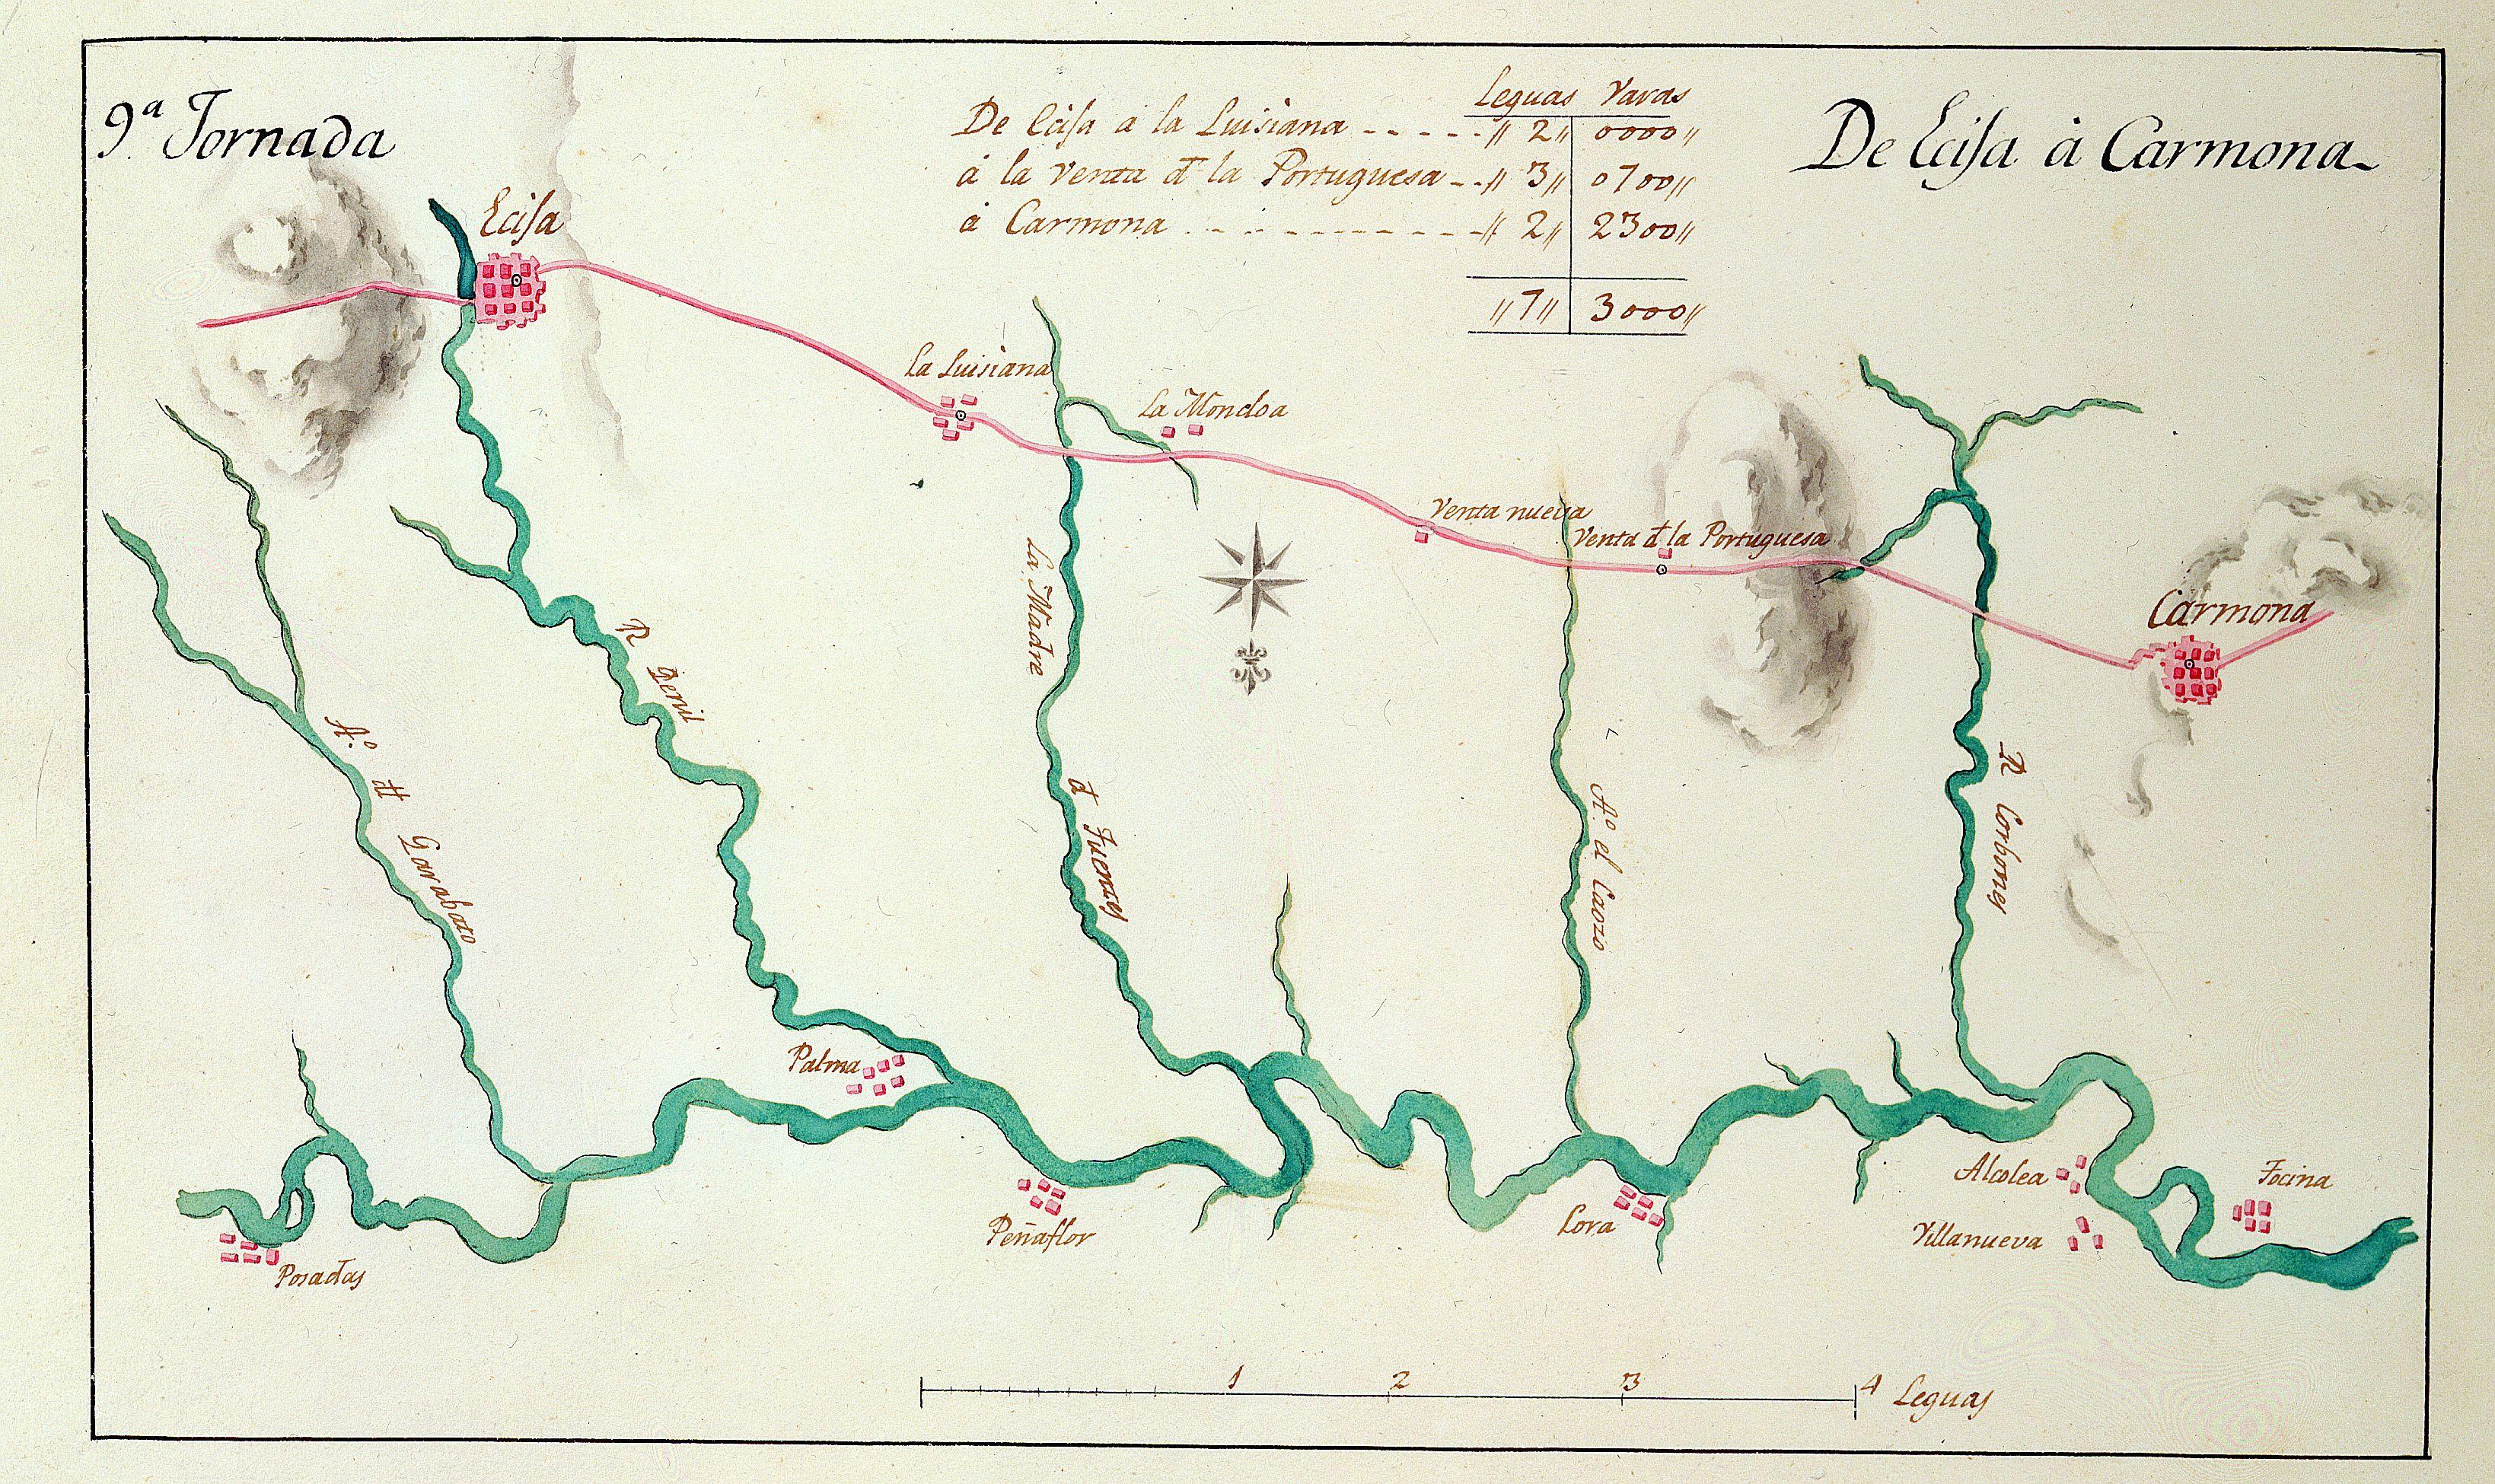 9ª Jornada
De Ecisa à Carmona
Leguas Varas
De Ecisa a la Luisiana - - - - - " 2 " 0000 "
á la venta đ la Portuguesa - - " 3 " 0700 "
á Carmona - - - - - - - - - - - " 2 " 2300 "
" 7 " 3000 "
Ecisa
La Luisiana
La Moncloa
Venta nueva
Venta đ la Portuguesa
Carmona
R Genil
La Madre đ Fuentes
Aº đl Garabato
Aº el Caozo
R Corbones
Palma
Posadas
Peñaflor
Lora
Alcolea
Villanueva
Tocina
1 2 3 4 Leguas